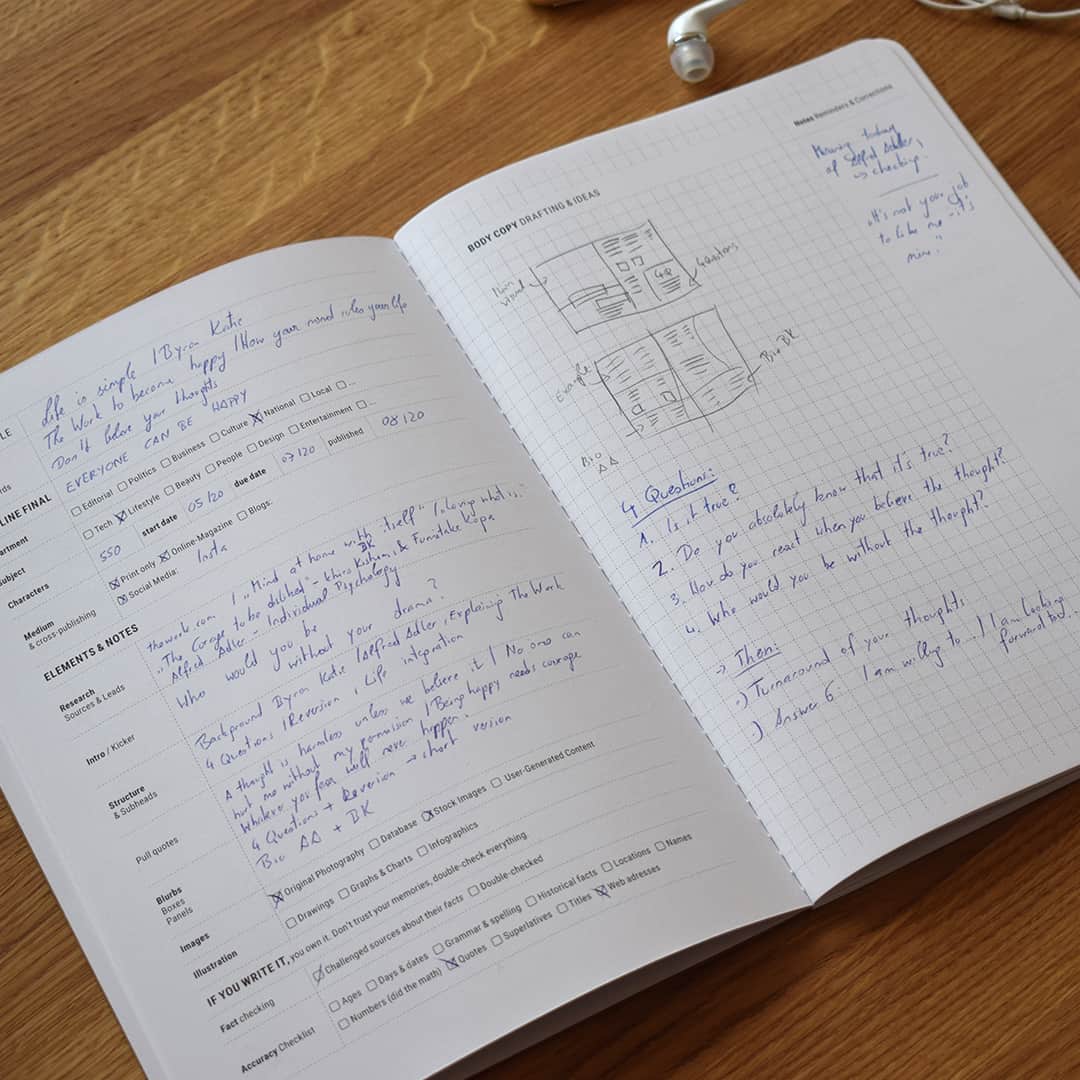 Life is simple | Byron Katie
The Work to become happy | How your mind rules your life
Don't believe your thoughts
EVERYONE CAN BE HAPPY
LINE FINAL
☐ Editorial ☐ Politics ☐ Business ☐ Culture ☒ National ☐ Local ☐...
☐ Tech ☒ Lifestyle ☐ Beauty ☐ People ☐ Design ☐ Entertainment ☐...
Characters 550 start date 05/20 due date 07/20 published 08/20
Medium
& cross-publishing
☒ Print only ☒ Online-Magazine ☐ Blogs:
☒ Social Media: Insta
ELEMENTS & NOTES
Research
Sources & Leads
thework.com | „Mind at home with itself" | „loving what is."
BK
„The Corage to be disliked" - Kishimi, & Fumitake Koga
Alfred Adler - Individual Psychology
Intro / Kicker
Who would you be
without your drama?
Structure
& Subheads
Background Byron Katie | Alfred Adler, Explaining The Work
4 Questions | Reversion, Life integration
Pull quotes
A thought is harmless unless we believe it | No one can
hurt me without my permission | Being happy needs corage
Whatever you fear will never happen.
Blurbs
Boxes
Panels
4 Questions + Reversion → short version
Bio AA + BK
Images
☒ Original Photography ☐ Database ☒ Stock Images ☐ User-Generated Content
Illustration
☐ Drawings ☐ Graphs & Charts ☐ Infographics
IF YOU WRITE IT, you own it. Don't trust your memories, double-check everything
Fact checking
Challenged sources about their facts ☐ Double-checked
Accuracy Checklist
☐ Ages ☐ Days & dates ☐ Grammar & spelling ☐ Historical facts ☐ Locations ☐ Names
☐ Numbers (did the math) ☒ Quotes ☐ Superlatives ☐ Titles ☒ Web adresses
BODY COPY DRAFTING & IDEAS
Main
visual
4Q
4 Questions
Example
Bio BK
Bio
AA
4 Questions:
1. Is it true?
2. Do you absolutely know that it's true?
3. How do you react when you believe the thought?
4. Who would you be without the thought?
→ Then:
•) Turnaround of your thoughts
•) Answer 6: I am willing to... | I am looking
forward to...
Notes Reminders & Corrections
of Alfred Adler,
→ checking.
„It's not your job
to like me - it's
mine."